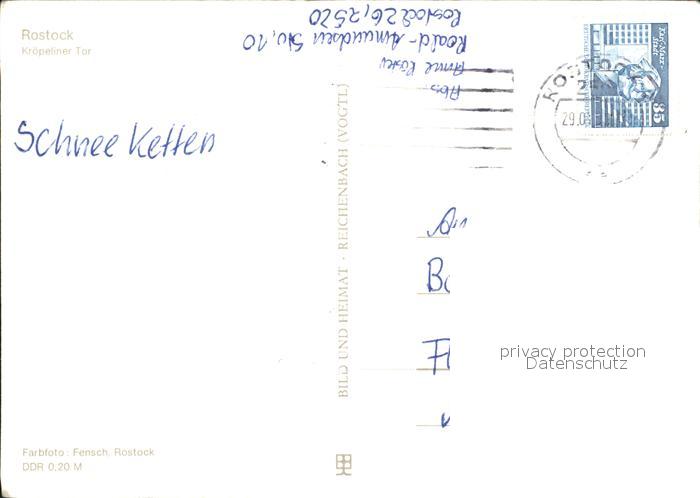 Rostock
Kröpeliner Tor
Schnee Ketten
Farbfoto: Fensch, Rostock
DDR 0,20 M
BILD UND HEIMAT · REICHENBACH (VOGTL)
Abs
Anne
Roald-Amundsen Str, 10
Rostock 26, 2520
Karl-Marx-
Stadt
85
ROSTOCK
29.0
An
B
F
privacy protection
Datenschutz